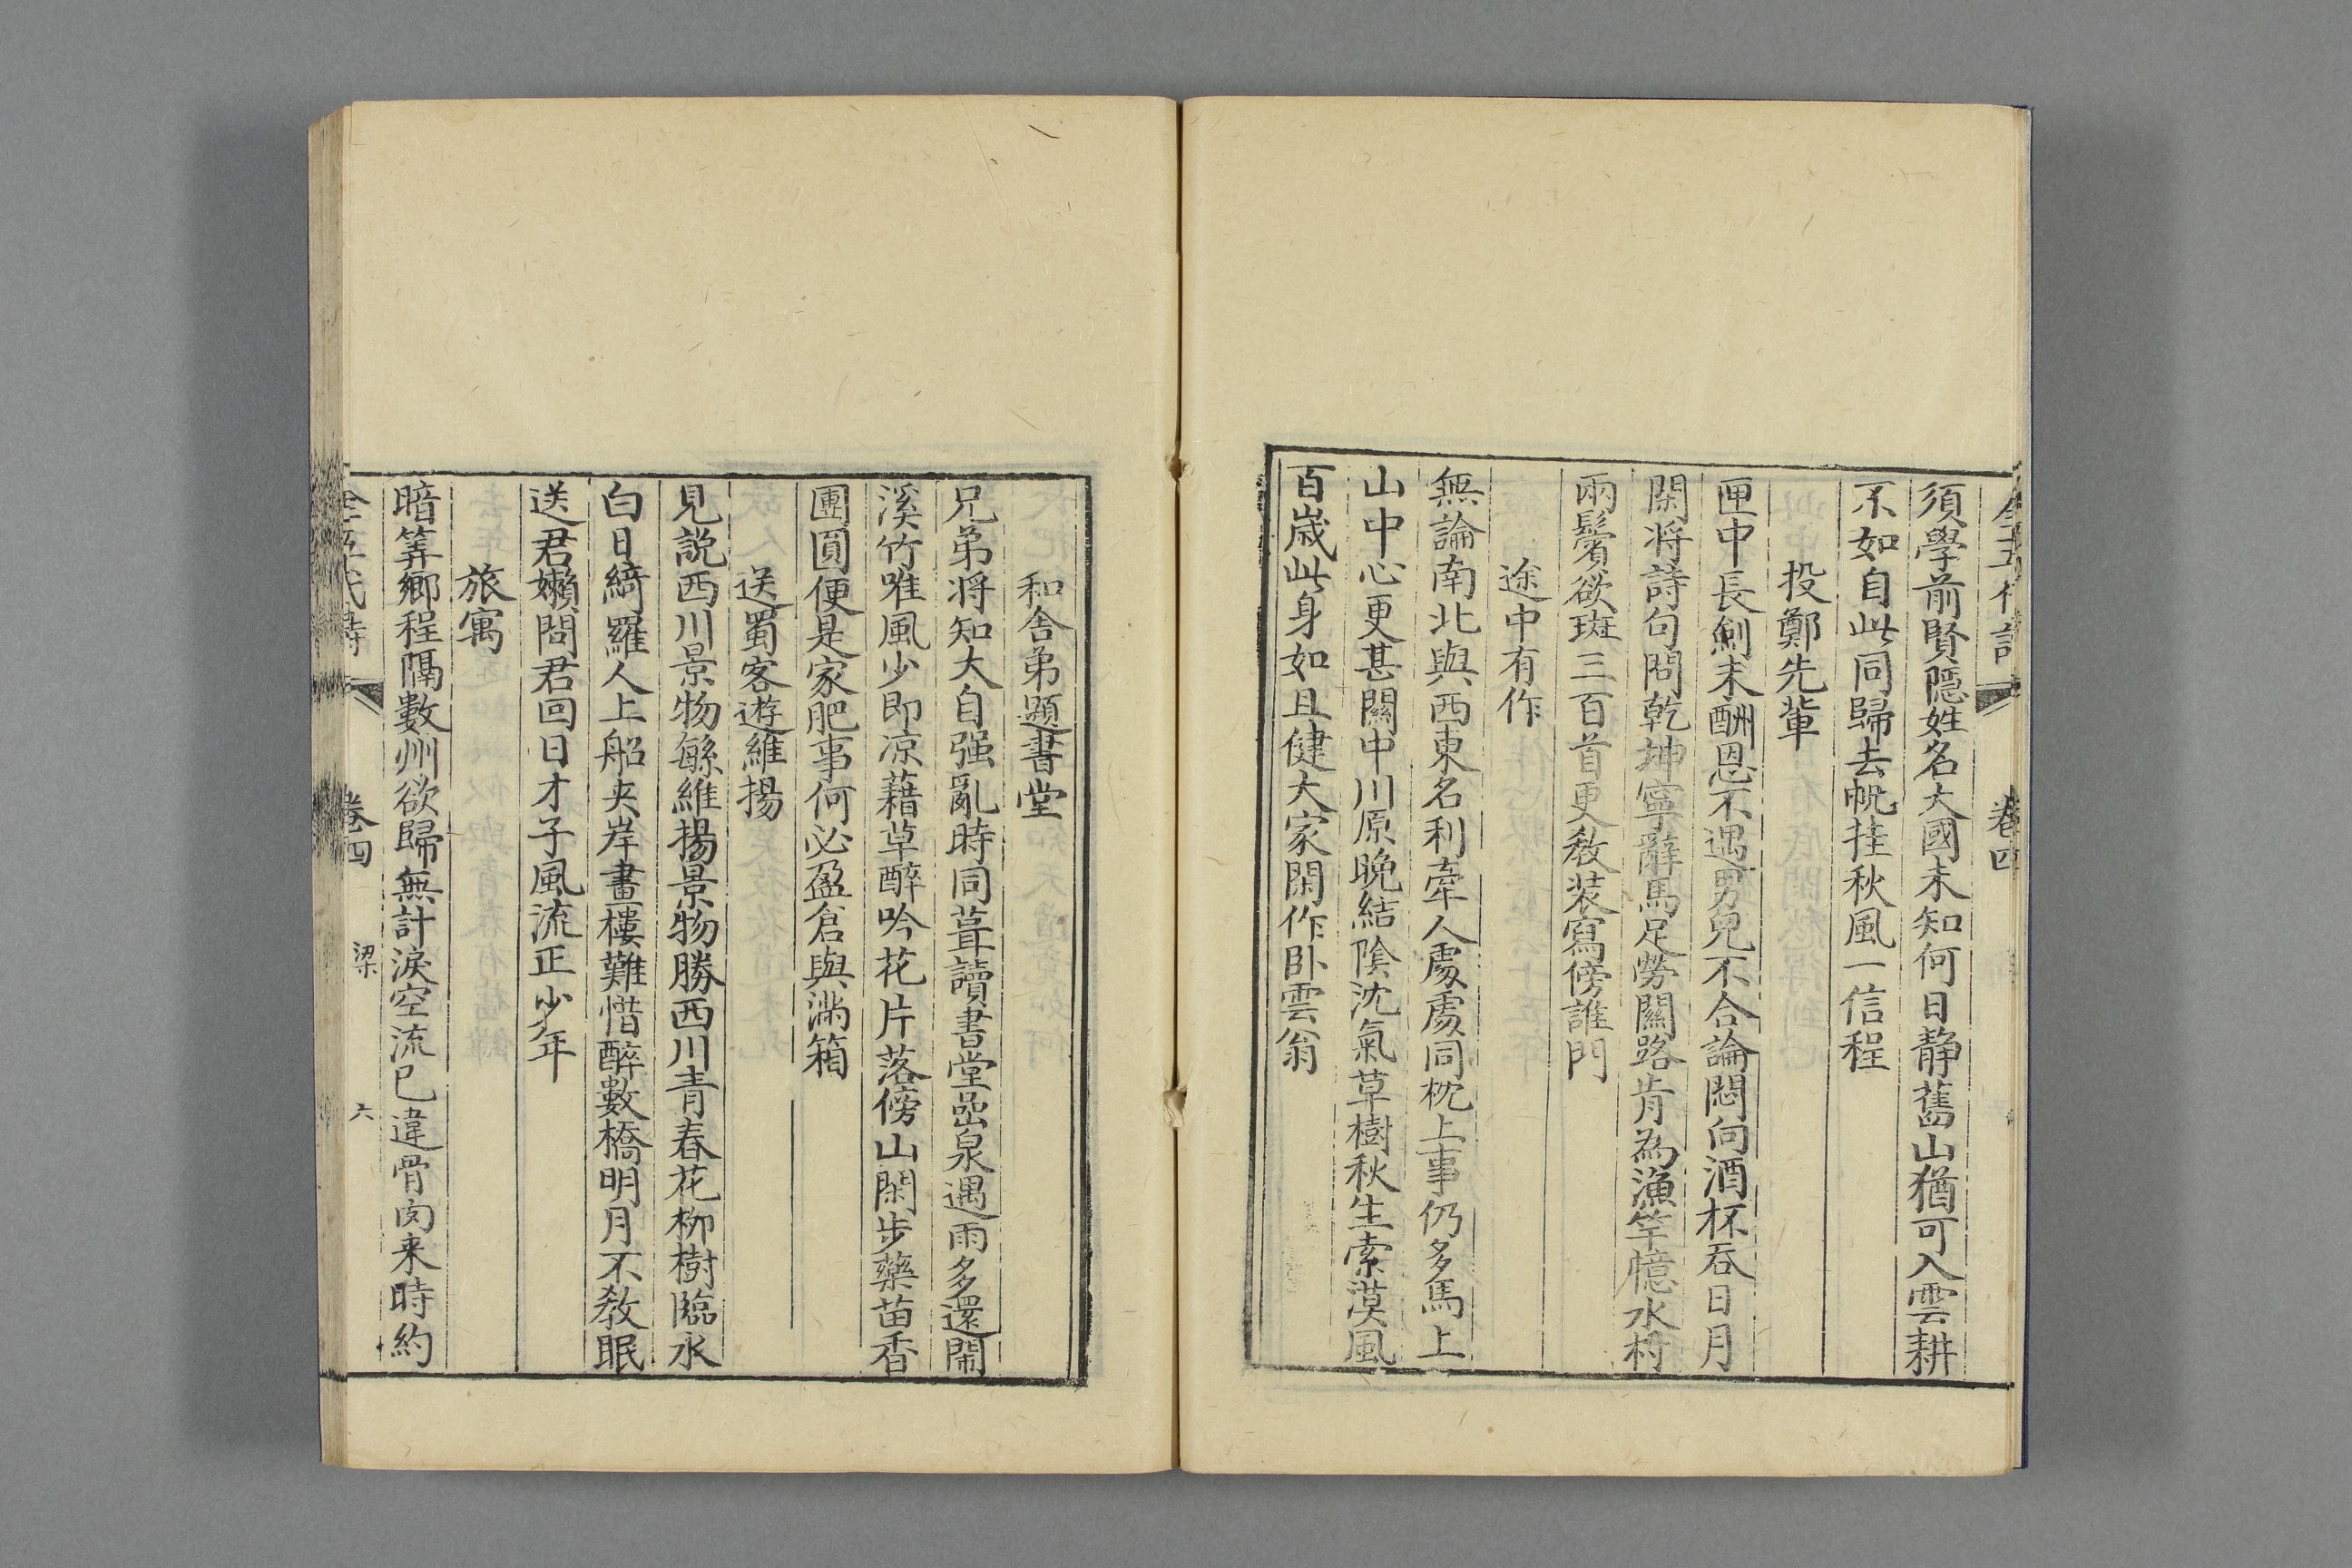 全五代詩 卷四
須學前賢隱姓名大國未知何日静舊山猶可入雲耕
不如自此同歸去帆挂秋風一信程
投鄭先輩
匣中長劍未酬恩不遇男兒不合論悶向酒杯吞日月
閑将詩句問乾坤寧辭馬足勞關路肯為漁竿憶水村
兩鬢欲斑三百首更教装寫傍誰門
途中有作
無論南北與西東名利牽人處處同枕上事仍多馬上
山中心更甚關中川原晚結陰沈氣草樹秋生索漠風
百歲此身如且健大家閑作卧雲翁
和舍弟題書堂
兄弟将知大自强亂時同葺讀書堂嵒泉遇雨多還鬧
溪竹唯風少即凉藉草醉吟花片落傍山閑步藥苗香
團圓便是家肥事何必盈倉與滿箱
送蜀客遊維揚
見説西川景物繁維揚景物勝西川青春花柳樹臨水
白日綺羅人上船夹岸畫樓難惜醉數橋明月不教眠
送君嬾問君回日才子風流正少年
旅寓
暗筭鄉程隔數州欲歸無計淚空流已違骨肉来時約
全五代詩 卷四 梁 六